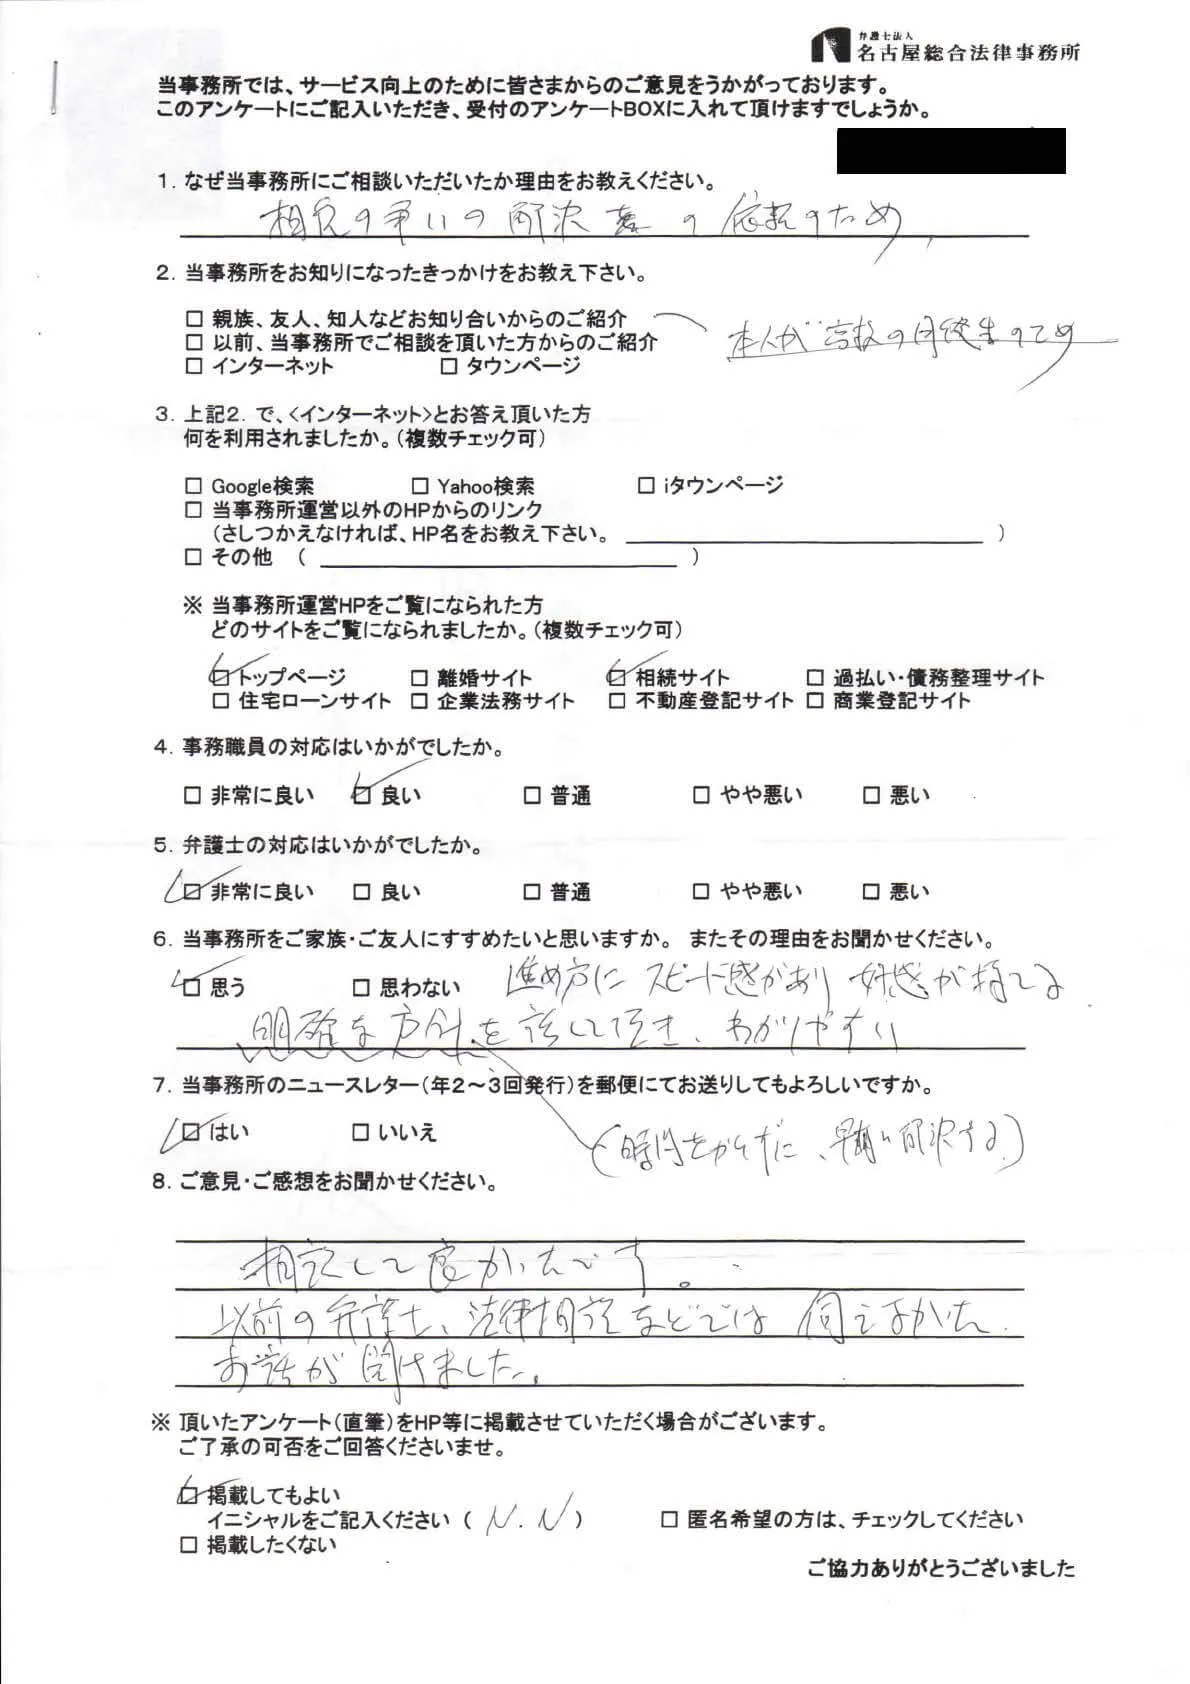 弁護士法人
名古屋総合法律事務所
当事務所では、サービス向上のために皆さまからのご意見をうかがっております。
このアンケートにご記入いただき、受付のアンケートBOXに入れて頂けますでしょうか。
1. なぜ当事務所にご相談いただいたか理由をお教えください。
の争いの解決 の依頼のため
2. 当事務所をお知りになったきっかけをお教え下さい。
□ 親族、友人、知人などお知り合いからのご紹介
本人が高校の同級生のため
□ 以前、当事務所でご相談を頂いた方からのご紹介
□ インターネット □ タウンページ
3. 上記2. で、<インターネット>とお答え頂いた方
何を利用されましたか。(複数チェック可)
□ Google検索 □ Yahoo検索 □ iタウンページ
□ 当事務所運営以外のHPからのリンク
(さしつかえなければ、HP名をお教え下さい。 )
□ その他 ( )
※ 当事務所運営HPをご覧になられた方
どのサイトをご覧になられましたか。(複数チェック可)
☑ トップページ □ 離婚サイト ☑ 相続サイト □ 過払い・債務整理サイト
□ 住宅ローンサイト □ 企業法務サイト □ 不動産登記サイト □ 商業登記サイト
4. 事務職員の対応はいかがでしたか。
□ 非常に良い ☑ 良い □ 普通 □ やや悪い □ 悪い
5. 弁護士の対応はいかがでしたか。
☑ 非常に良い □ 良い □ 普通 □ やや悪い □ 悪い
6. 当事務所をご家族・ご友人にすすめたいと思いますか。 またその理由をお聞かせください。
☑ 思う □ 思わない 進め方に スピード感があり 好感が持てる
明確な方針を話して頂き、わかりやすい
7. 当事務所のニュースレター(年2～3回発行)を郵便にてお送りしてもよろしいですか。
☑ はい □ いいえ
(時間をかけずに、早期に解決する。)
8. ご意見・ご感想をお聞かせください。
相談して良かったです。
以前の弁護士、法律相談などでは 伺えなかった
お話が聞けました。
※ 頂いたアンケート(直筆)をHP等に掲載させていただく場合がございます。
ご了承の可否をご回答くださいませ。
☑ 掲載してもよい
イニシャルをご記入ください ( N.N ) □ 匿名希望の方は、チェックしてください
□ 掲載したくない
ご協力ありがとうございました